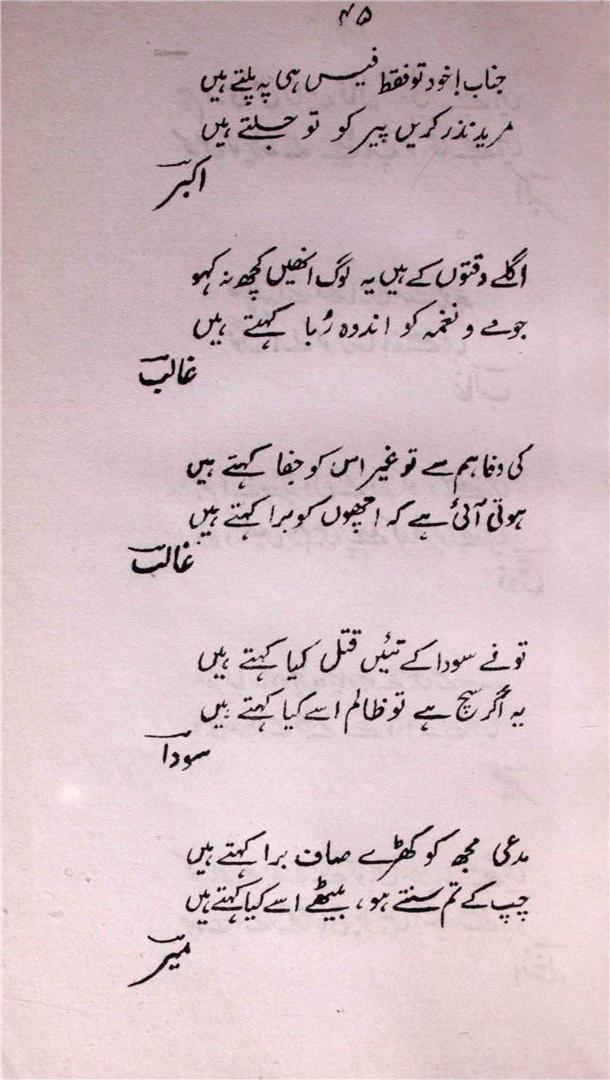 ۴۵
جناب! خود تو فقط فیس ہی پہ پلتے ہیں
مرید نذر کریں پیر کو تو جلتے ہیں
اکبر
اگلے وقتوں کے ہیں یہ لوگ انھیں کچھ نہ کہو
جو مے و نغمہ کو اندوہ رُبا کہتے ہیں
غالب
کی وفا ہم سے تو غیر اس کو جفا کہتے ہیں
ہوتی آئی ہے کہ اچھوں کو برا کہتے ہیں
غالب
تو نے سودا کے تئیں قتل کیا کہتے ہیں
یہ اگر سچ ہے تو ظالم اسے کیا کہتے ہیں
سودا
مدعی مجھ کو کھڑے صاف برا کہتے ہیں
چپکے تم سنتے ہو، بیٹھے اسے کیا کہتے ہیں
میر